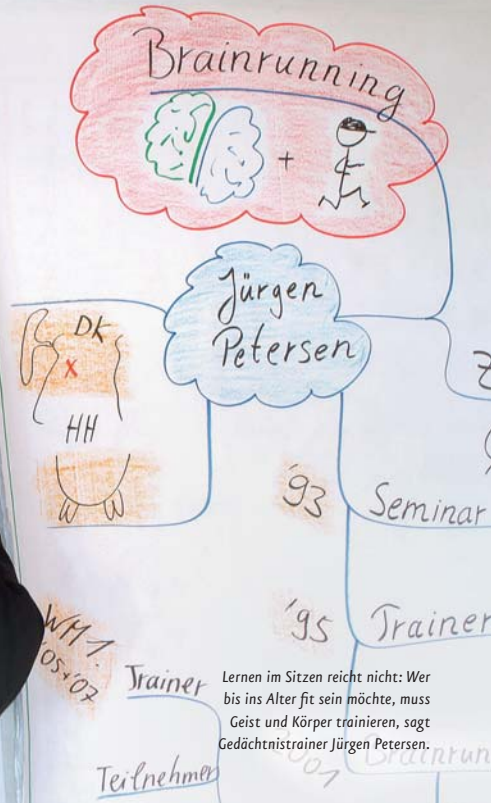 Brainrunning
+
Jürgen
Petersen
DK
X
HH
'93 Seminar
'95 Trainer
WM 1.
'05 + '07
Trainer
Teilnehmer
2001
Lernen im Sitzen reicht nicht: Wer
bis ins Alter fit sein möchte, muss
Geist und Körper trainieren, sagt
Gedächtnistrainer Jürgen Petersen.
Brainrun